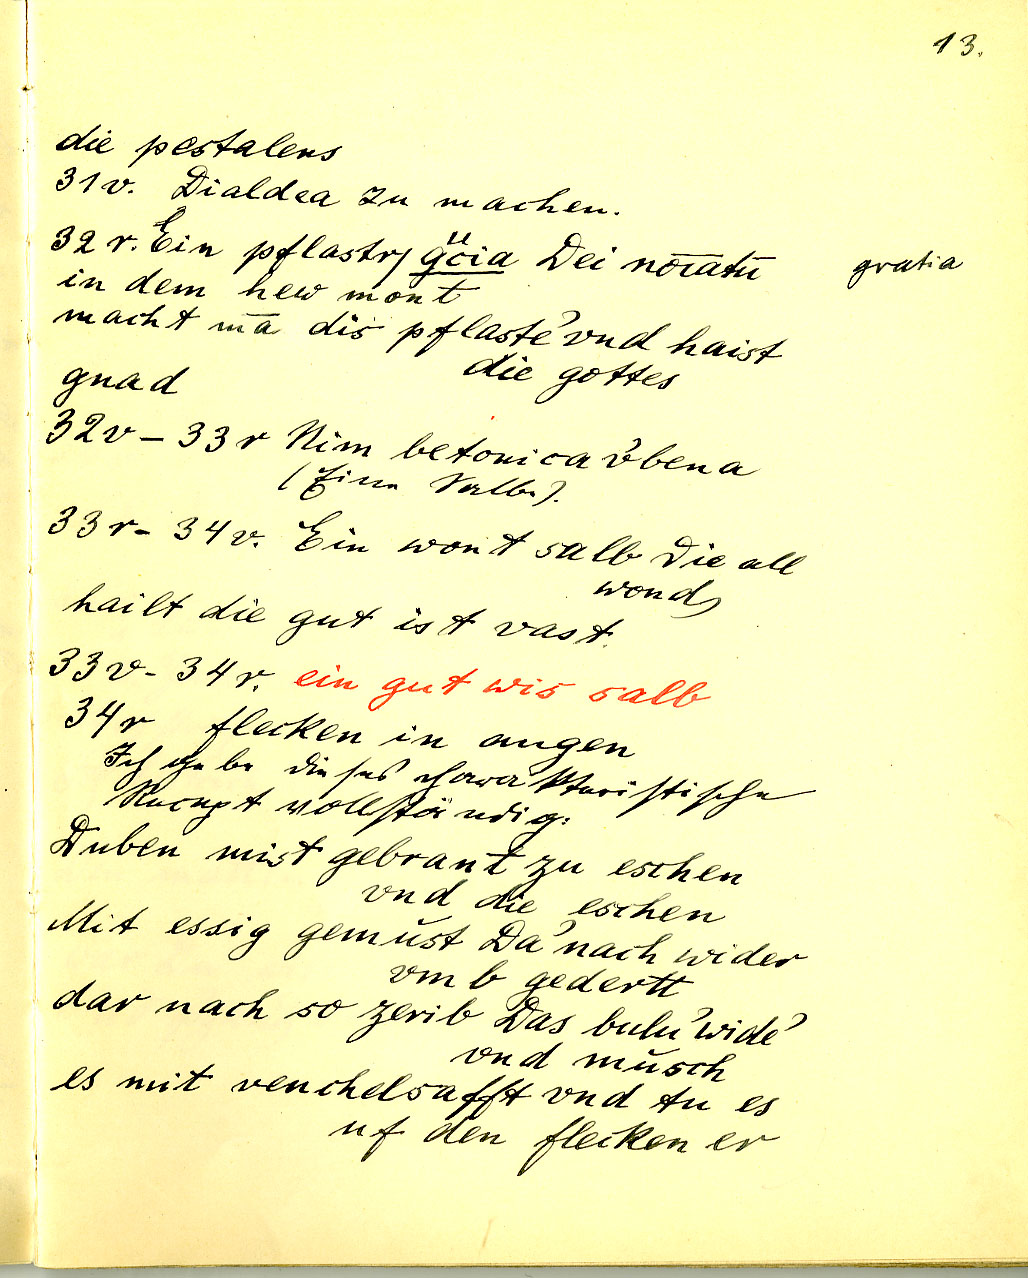 13.
die pestalens
31v. Dialdea zu machen.
32r. Ein pflastr gc̈ia Dei no̅i̅atu̅ gratia
in dem hew mont
macht m̅a̅ dis pflaste᾽ vnd haist
die gottes
gnad
32v – 33r Nim betonica v᾽bena
(Eine Salbe).
33r- 34v. Ein wont salb Die all
wond
hailt die gut ist vast.
33v- 34r. ein gut wis salb
34r flecken in augen
Ich gebe dieses charakteristische
Recept vollständig:
Duben mist gebrant zu eschen
vnd die eschen
Mit essig gemŭst Da᾽nach wider
vmb gedertt
dar nach so zerib Das bulu᾽ wide᾽
vnd mŭsch
es mit venchelsafft vnd tu es
uf den flecken er